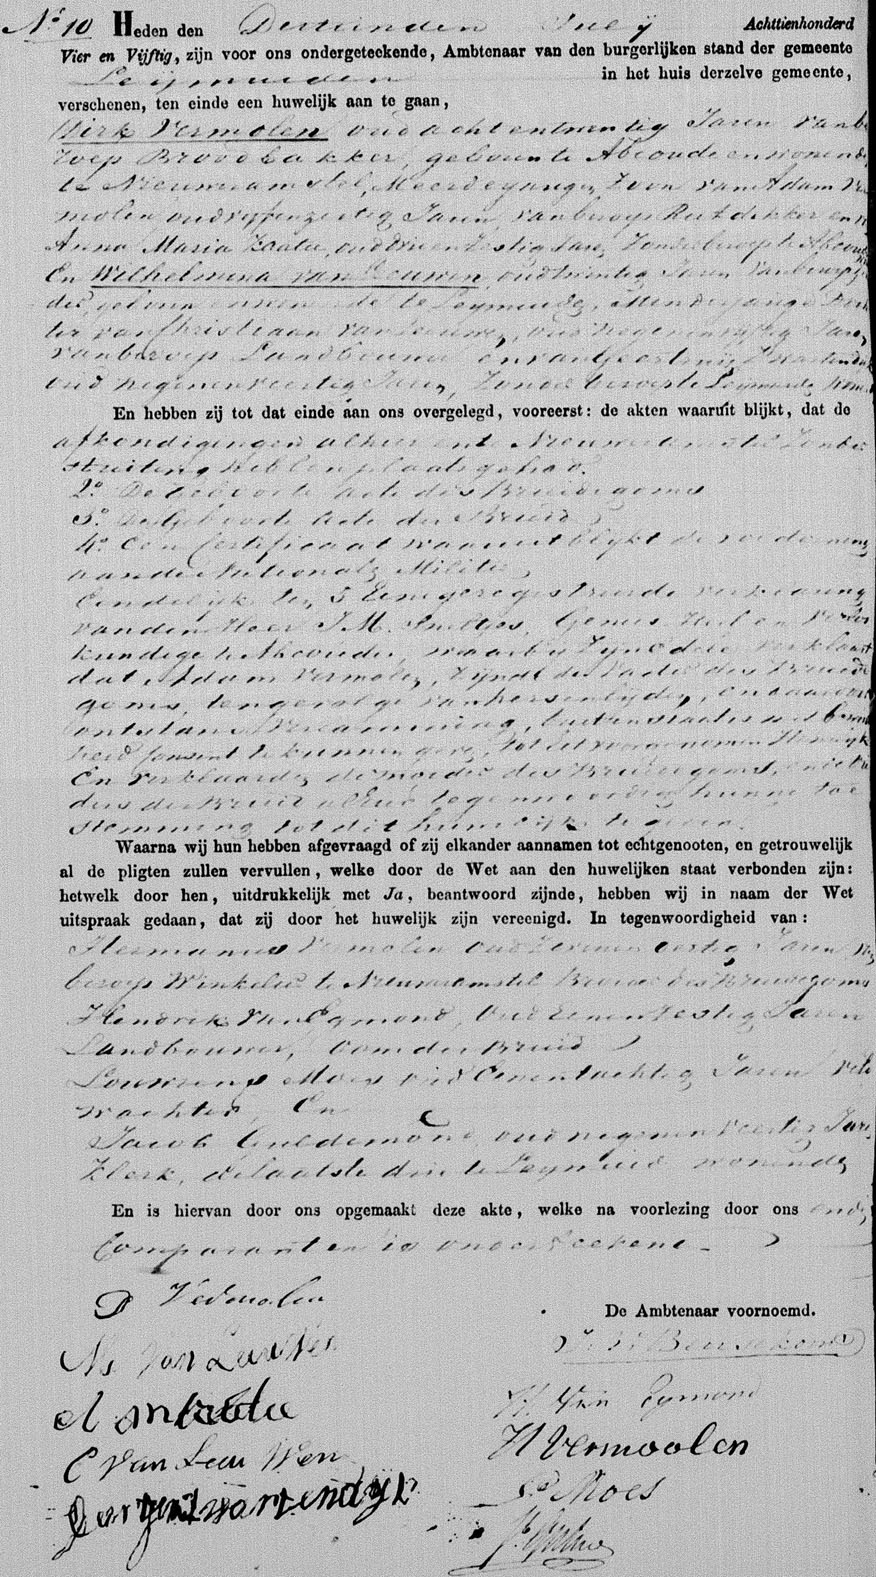 No 10 Heden den Dertienden July Achttienhonderd
Vier en Vijftig, zijn voor ons ondergeteekende, Ambtenaar van den burgerlijken stand der gemeente
Leijmuiden in het huis derzelve gemeente,
verschenen, ten einde een huwelijk aan te gaan,
Dirk Vermolen oud achtentwintig Jaren van be
roep Broodbakker, geboren te Abcoude en wonende
te Nieuweramstel, Meerderjarige Zoon van Adam Ver
molen oud vijfenzestig Jaren, van beroep Rietdekker en van
Anna Maria oud drieenzestig Jaren Zonder beroep te Abcoude
En Wilhelmina van Leeuwen, oud twintig Jaren van beroep
geboren en wonende te Leymuiden, Minderjarige Doch
ter van Christiaan van Leeuwen, oud negenenvijftig Jaren
van beroep Landbouwer en van Geertruij Zwartendijk
oud negenenveertig Jaren, Zonder beroep te Leymuiden
En hebben zij tot dat einde aan ons overgelegd, vooreerst: de akten waaruit blijkt, dat de
afkondigingen alhier en te Nieuweramstel Zonder
stuiting hebben plaats gehad.
2o De Geboorte Acte des Bruidegoms
3o De Geboorte Acte der Bruid
4o Een Certificaat waaruit blykt de voldoening
aan de Nationale Militie,
Eindelijk ten 5 Eene geregistreerde verklaring
van den Heer J. M. Genees Heel en Verlos
kundige te Abcoude, waarby Zyn Edele verklaart
dat Adam Vermolen, Zynde de Vader des Bruide
goms, ten gevolge van hersenlijden, en daardoor
buiten staat is met
heid Consent te kunnen geven, tot het voorgenomen Huwelijk
En verklaarden de moeder des Bruidegoms, en de Ou
ders der Bruid alhier tegenwoordig hunne toe
stemming tot dit huwelijk te geven.
Waarna wij hun hebben afgevraagd of zij elkander aannamen tot echtgenooten, en getrouwelijk
al de pligten zullen vervullen, welke door de Wet aan den huwelijken staat verbonden zijn:
hetwelk door hen, uitdrukkelijk met Ja, beantwoord zijnde, hebben wij in naam der Wet
uitspraak gedaan, dat zij door het huwelijk zijn vereenigd. In tegenwoordigheid van:
Hermanus Vermolen oud Jaren van
beroep Winkelier te Nieuweramstel Broeder des Bruidegoms
Hendrik van Egmond, Oud Eenenzestig Jaren
Landbouwer, Oom der Bruid
Louwrens Moes oud Eenentachtig Jaren Veld
wachter, En
Jacob Guldemond, oud negenenveertig Jaren
Klerk, de laatste drie te Leymuiden wonende
En is hiervan door ons opgemaakt deze akte, welke na voorlezing door ons en de
Comparanten is onderteekend
D Vermolen
De Ambtenaar voornoemd.
W. Van Leeuwen
H. Van Egmond
C Van Leeuwen
H Vermoolen
Moes